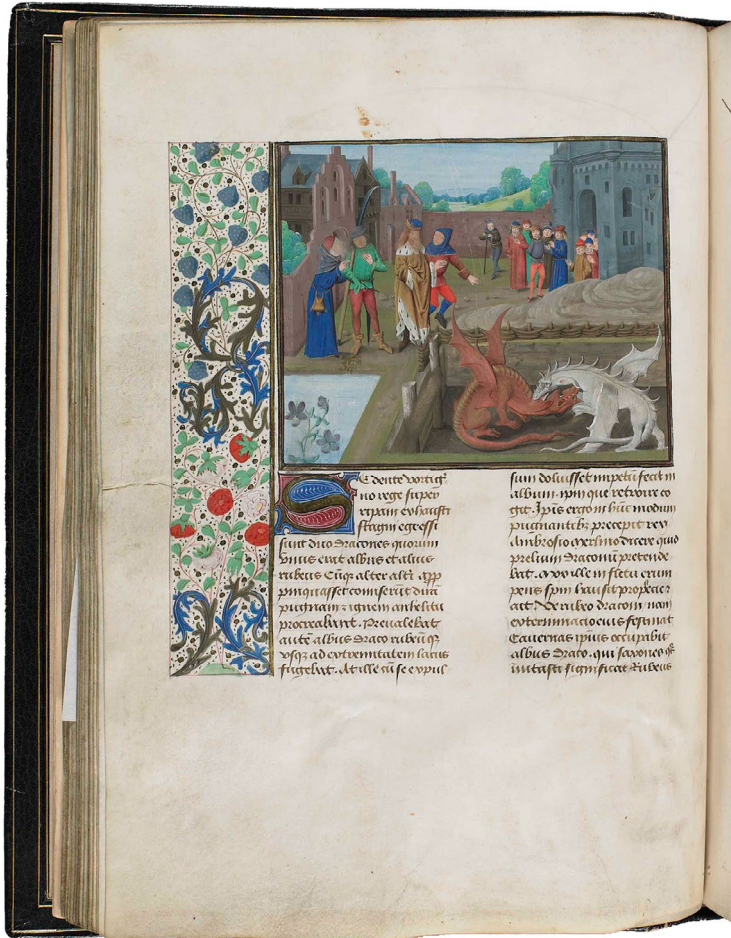 SEdente vortigʼ
no rege super
ripam exhausti
stagni egressi
sunt duo dracones quorum
unus erat albus et alius
rubeus Cūqʒ alter altʼi app
pinquasset comiserunt dirā
pugnam ⁊ ignem anhelitu
procreabant. Prevalebat
autē albus draco rubeū qʒ
vsqʒ ad extremitatem lacus
fugebat. At ille cū se expul
sum doluisset impetū fecit in
album. ipm que retroire co
git. Ip̄is ergo in hūc modum
pugnantibʒ precepit rex
Ambrosio merlino dicere quid
prelium draconū pretende
bat. ille in fletū erum
pens sp̄m hausit prophecie
ait Ve rubeo draconi nam
exterminacio eius festinat
Cavernas ipius occupabit
albus draco. qui saxones qˢ
invitasti significat Rubeus